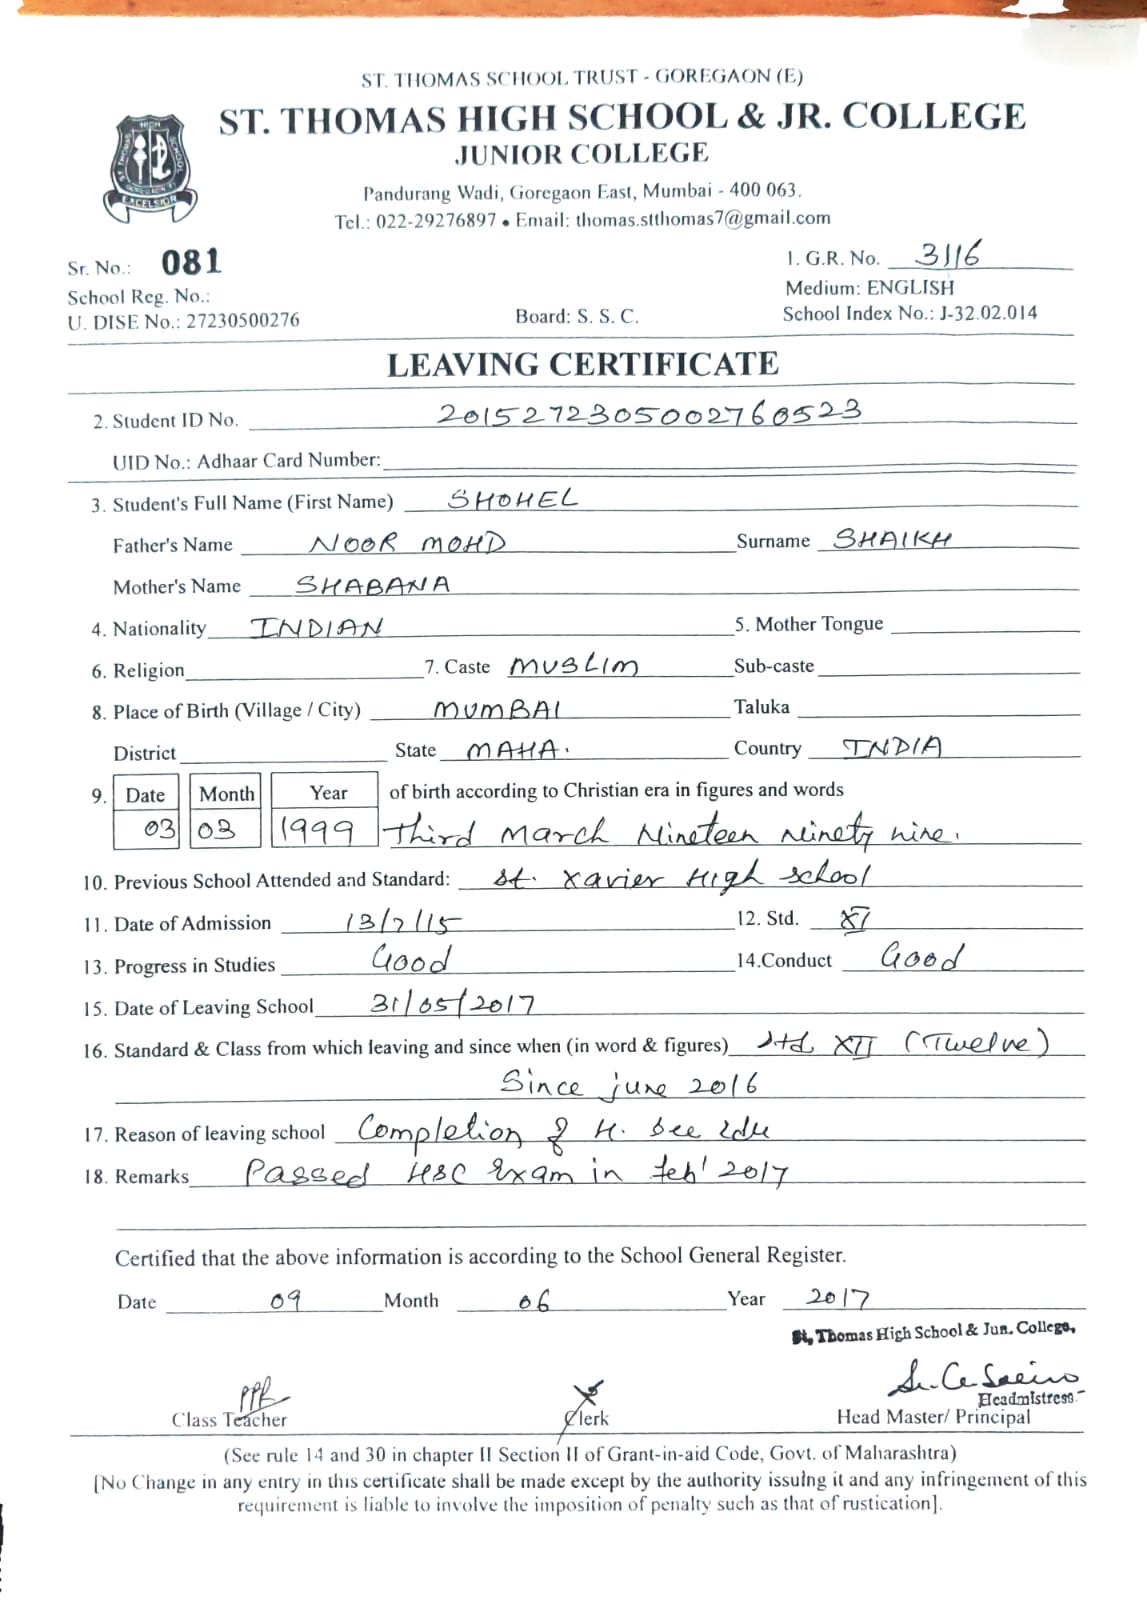 ST. THOMAS SCHOOL TRUST - GOREGAON (E)
ST. THOMAS HIGH SCHOOL & JR. COLLEGE
JUNIOR COLLEGE
Pandurang Wadi, Goregaon East, Mumbai - 400 063.
Tel.: 022-29276897 • Email: thomas.stthomas7@gmail.com
HIGH
ST THOMAS SCHOOL
GOREGAON
EXCELSIOR
Sr. No.: 081 1. G.R. No. 3116
School Reg. No.: Medium: ENGLISH
U. DISE No.: 27230500276 Board: S. S. C. School Index No.: J-32.02.014
LEAVING CERTIFICATE
2. Student ID No. 2015272305002760523
UID No.: Adhaar Card Number:
3. Student's Full Name (First Name) SHOHEL
Father's Name NOOR MOHD Surname SHAIKH
Mother's Name SHABANA
4. Nationality INDIAN 5. Mother Tongue
6. Religion 7. Caste MUSLIM Sub-caste
8. Place of Birth (Village / City) MUMBAI Taluka
District State MAHA. Country INDIA
9. Date Month Year of birth according to Christian era in figures and words
03 03 1999 Third March Nineteen Ninety nine.
10. Previous School Attended and Standard: St. Xavier High School
11. Date of Admission 13/7/15 12. Std. XI
13. Progress in Studies Good 14.Conduct Good
15. Date of Leaving School 31/05/2017
16. Standard & Class from which leaving and since when (in word & figures) Std XII (Twelve)
Since june 2016
17. Reason of leaving school Completion of H. Sec Edu
18. Remarks Passed HSC Exam in Feb' 2017
Certified that the above information is according to the School General Register.
Date 09 Month 06 Year 2017
St. Thomas High School & Jun. College,
Headmistress
Class Teacher Clerk Head Master/ Principal
(See rule 14 and 30 in chapter II Section II of Grant-in-aid Code, Govt. of Maharashtra)
[No Change in any entry in this certificate shall be made except by the authority issuing it and any infringement of this
requirement is liable to involve the imposition of penalty such as that of rustication].